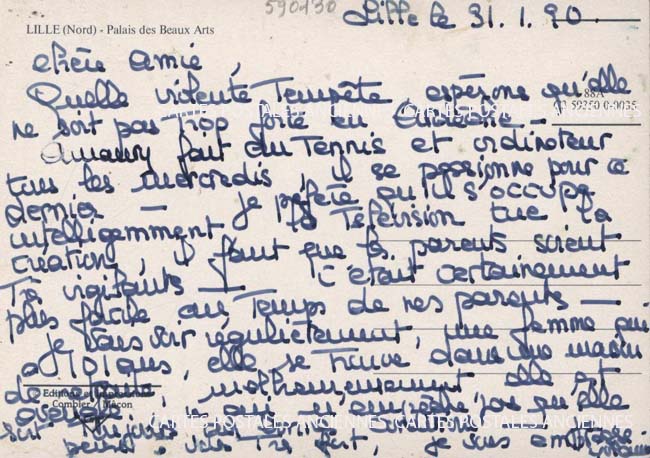 590430
Lille le 31.1.90
LILLE (Nord) - Palais des Beaux Arts
chère amie,
Quelle violente Tempête, espérons qu'elle
88A
ne soit pas trop forte en
CARTES POSTALES ANCIENNES CARTES POSTALES ANCIENNES
Amaury fait du Tennis et ordinateur
tous les mercredis, il se passionne pour ce
dernier — je préfère qu'il s'occupe
intelligemment, la Télévision tue la
création, il faut que les parents soient
Très vigilants — c'était certainement
plus facile au Temps de nos parents —
je vais voir régulièrement, une femme qui
a 101 ans, elle se trouve dans une maison
de malheureusement elle est
Editions
Combier Mâcon
qu'elle
CARTES POSTALES ANCIENNES CARTES POSTALES ANCIENNES
soit toujours
très fort, je vous embrasse